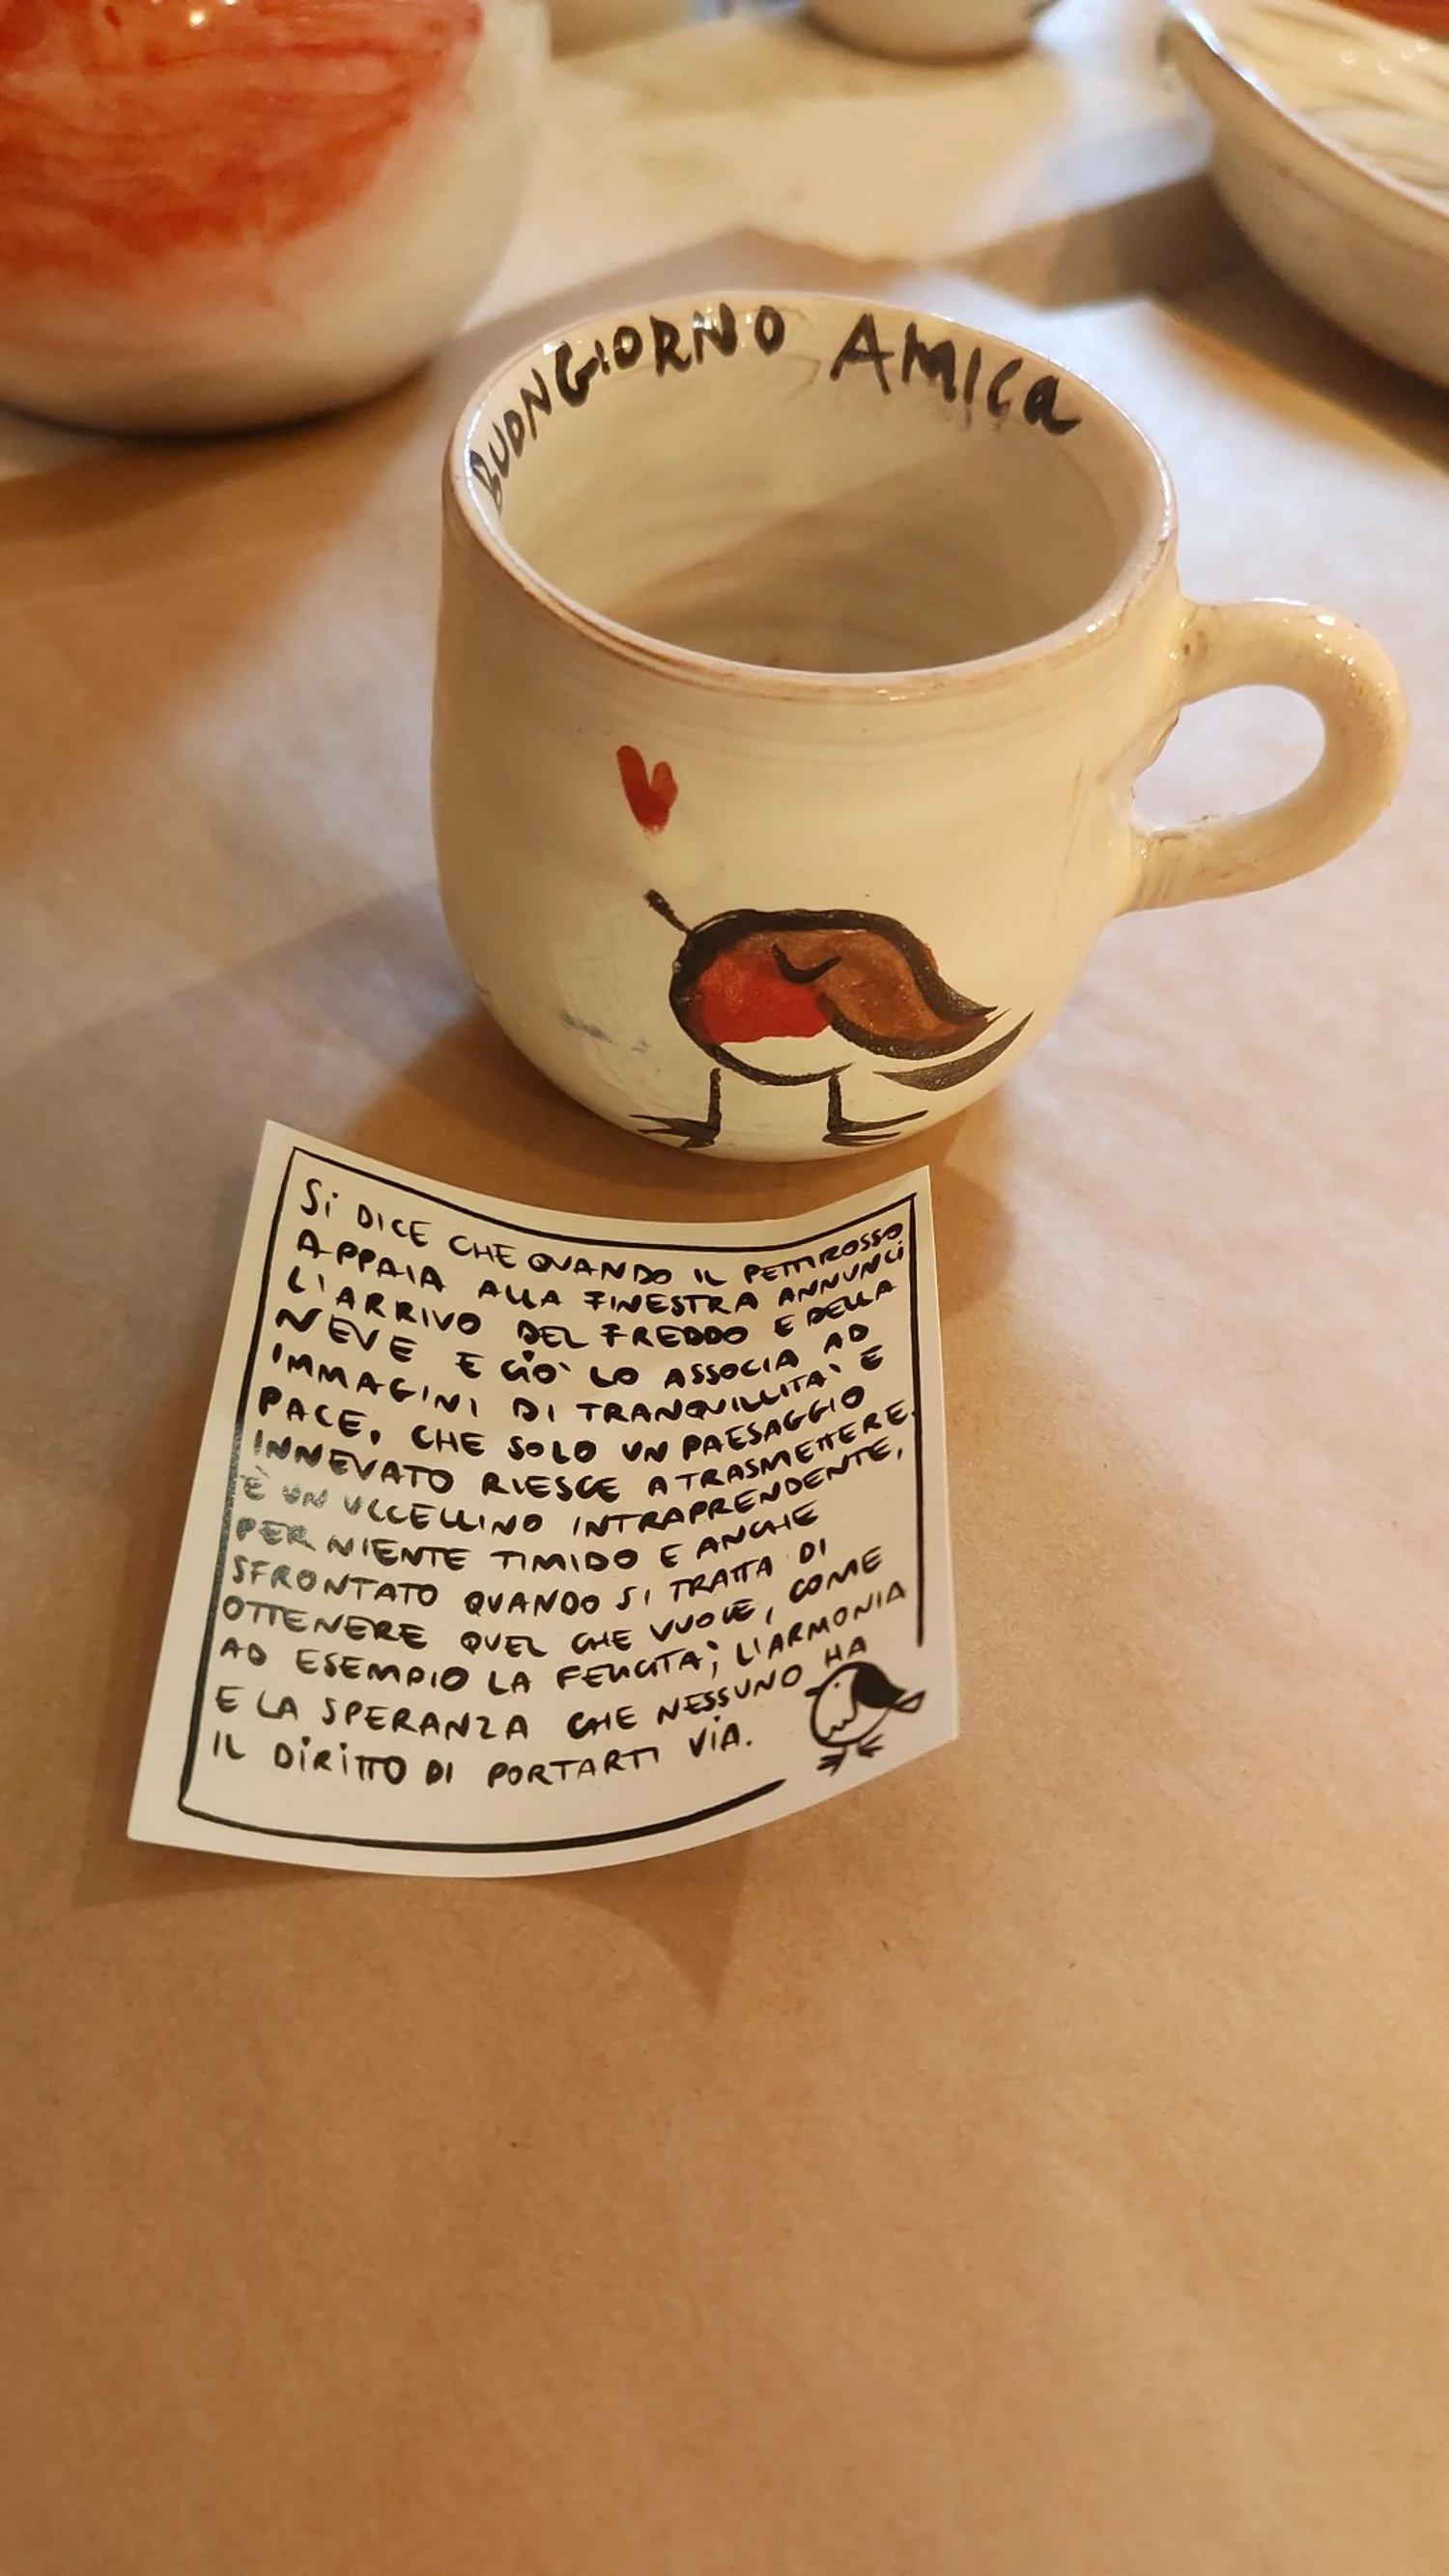 BUONGIORNO AMICa
Si DICE CHE QUANDO IL PETTIROSSO
APPAIA ALLA FINESTRA ANNUNCi
L'ARRIVO DEL FREDDO E DELLA
NEVE E CIÒ LO ASSOCIA AD
IMMAGINI DI TRANQUILLITA' E
PACE, CHE SOLO UN PAESAGGIO
INNEVATO RIESCE A TRASMETTERE.
È UN UCCELLINO INTRAPRENDENTE,
PER NIENTE TIMIDO E ANCHE
SFRONTATO QUANDO SI TRATTA DI
OTTENERE QUEL CHE VUOLE, COME
AD ESEMPIO LA FELICITA', L'ARMONIA
E LA SPERANZA CHE NESSUNO HA
IL DiRiTTO DI PORTARTI ViA.